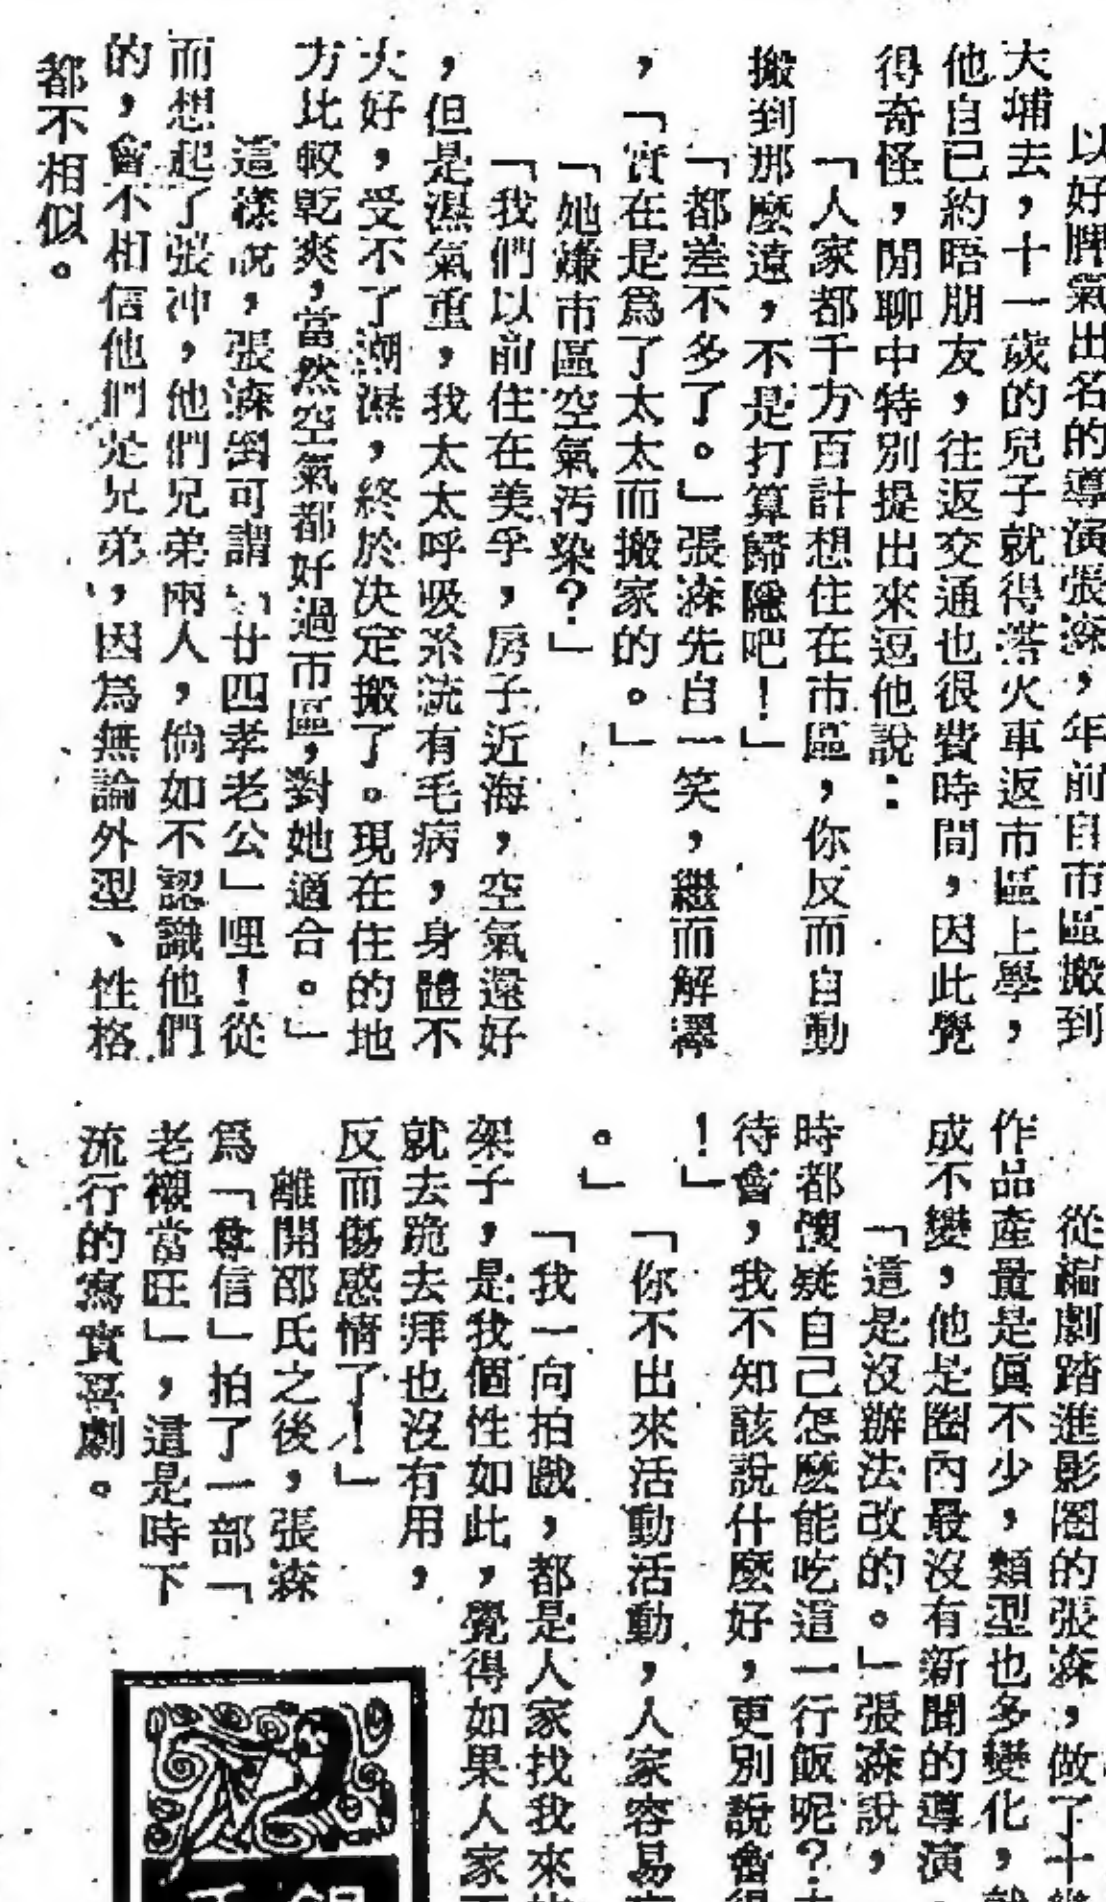 以好脾氣出名的導演張森，年前自市區搬到
大埔去，十一歲的兒子就得搭火車返市區上學，
他自己約晤朋友，往返交通也很費時間，因此覺
得奇怪，閒聊中特別提出來逗他說：
「人家都千方百計想住在市區，你反而自動
搬到那麼遠，不是打算歸隱吧！」
「都差不多了。」張森先自一笑，繼而解釋
，「實在是爲了太太而搬家的。」
「她嫌市區空氣污染？」
「我們以前住在美孚，房子近海，空氣還好
，但是濕氣重，我太太呼吸系統有毛病，身體不
大好，受不了潮濕，終於決定搬了。現在住的地
方比較乾爽，當然空氣都好過市區，對她適合。」
這樣說，張森倒可謂「廿四孝老公」哩！從
而想起了張冲，他們兄弟兩人，倘如不認識他們
的，會不相信他們是兄弟，因爲無論外型、性格
都不相似。
從編劇踏進影圈的張森，做了十
作品產量是眞不少，類型也多變化，就
成不變，他是圈內最沒有新聞的導演
「這是沒辦法改的。」張森說，
時都懷疑自己怎麼能吃這一行飯呢？
待會，我不知該說什麼好，更別說會得
！」
「你不出來活動活動，人家容易
。」
「我一向拍戲，都是人家找我來
架子，是我個性如此，覺得如果人家不
就去跪去拜也沒有用，
反而傷感情了！」
離開邵氏之後，張森
爲「奪信」拍了一部「
老襯當旺」，這是時下
流行的寫實喜劇。